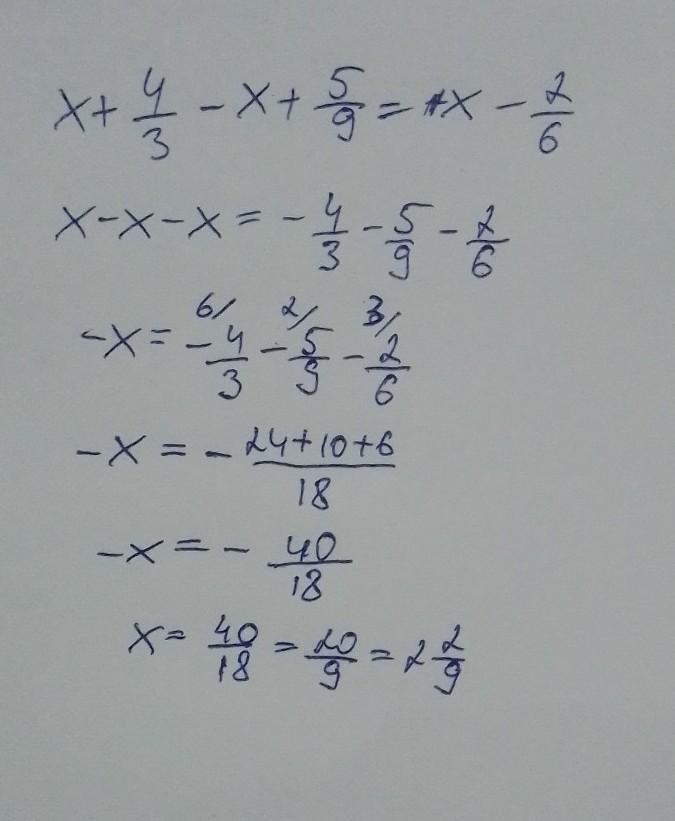 x + 4/3 - x + 5/9 = x - 2/6
x - x - x = - 4/3 - 5/9 - 2/6
6/ 2/ 3/
-x = - 4/3 - 5/9 - 2/6
-x = - 24+10+6/18
-x = - 40/18
x = 40/18 = 20/9 = 2 2/9